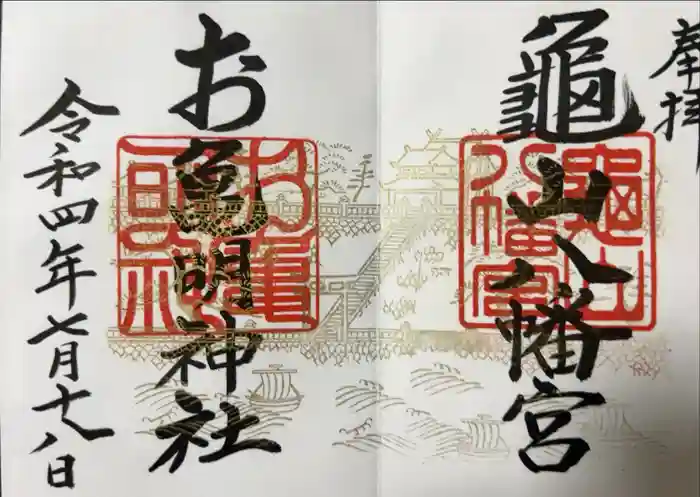 奉拝
龜山八幡宮
お亀明神社
令和四年七月十八日
龜山八幡宮